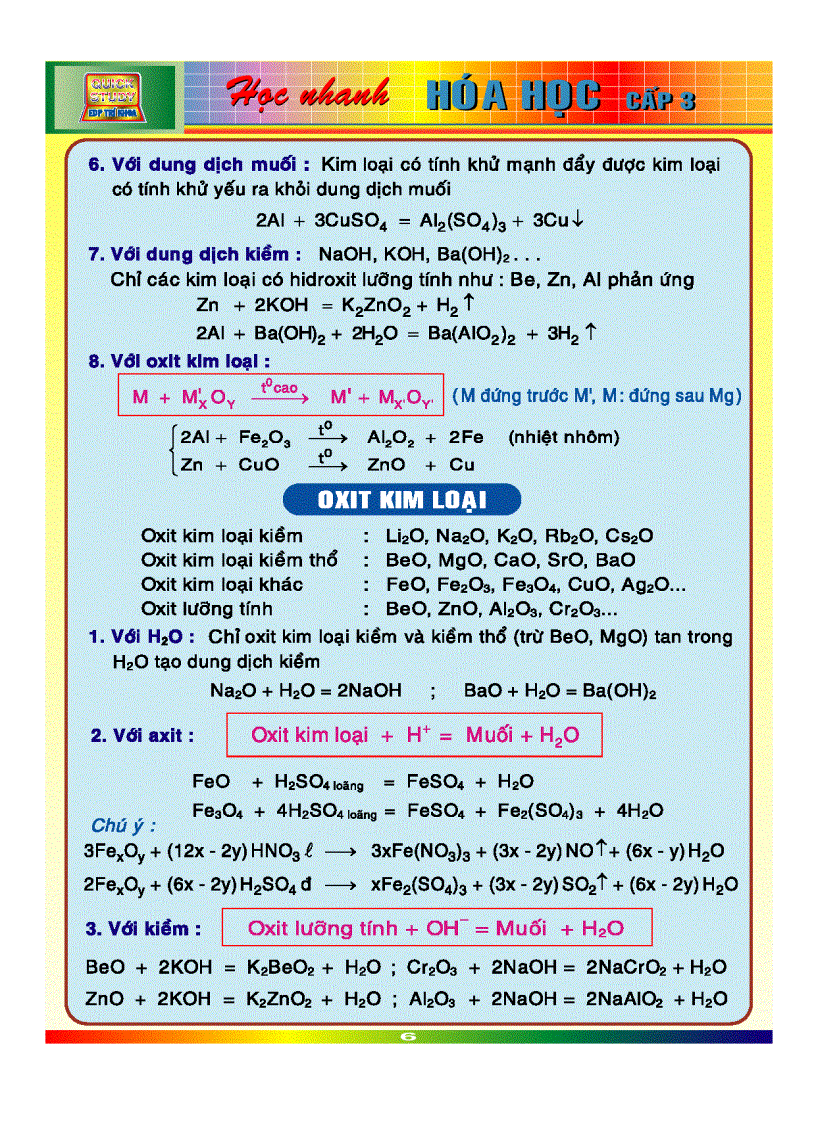 QUICK
STUDY
EDP TRÍ KHOA
Học nhanh HÓA HỌC CẤP 3
6. Với dung dịch muối : Kim loại có tính khử mạnh đẩy được kim loại
có tính khử yếu ra khỏi dung dịch muối
2Al + 3CuSO₄ = Al₂(SO₄)₃ + 3Cu↓
7. Với dung dịch kiềm : NaOH, KOH, Ba(OH)₂ . . .
Chỉ các kim loại có hidroxit lưỡng tính như : Be, Zn, Al phản ứng
Zn + 2KOH = K₂ZnO₂ + H₂ ↑
2Al + Ba(OH)₂ + 2H₂O = Ba(AlO₂)₂ + 3H₂ ↑
8. Với oxit kim loại :
M + M'ₓOᵧ —t⁰cao→ M' + Mₓ'Oᵧ' (M đứng trước M', M : đứng sau Mg)
2Al + Fe₂O₃ —t⁰→ Al₂O₂ + 2Fe (nhiệt nhôm)
Zn + CuO —t⁰→ ZnO + Cu
OXIT KIM LOẠI
Oxit kim loại kiềm : Li₂O, Na₂O, K₂O, Rb₂O, Cs₂O
Oxit kim loại kiềm thổ : BeO, MgO, CaO, SrO, BaO
Oxit kim loại khác : FeO, Fe₂O₃, Fe₃O₄, CuO, Ag₂O...
Oxit lưỡng tính : BeO, ZnO, Al₂O₃, Cr₂O₃...
1. Với H₂O : Chỉ oxit kim loại kiềm và kiềm thổ (trừ BeO, MgO) tan trong
H₂O tạo dung dịch kiềm
Na₂O + H₂O = 2NaOH ; BaO + H₂O = Ba(OH)₂
2. Với axit : Oxit kim loại + H⁺ = Muối + H₂O
FeO + H₂SO₄ loãng = FeSO₄ + H₂O
Fe₃O₄ + 4H₂SO₄ loãng = FeSO₄ + Fe₂(SO₄)₃ + 4H₂O
Chú ý :
3FeₓOᵧ + (12x - 2y) HNO₃ ℓ ⟶ 3xFe(NO₃)₃ + (3x - 2y) NO↑ + (6x - y) H₂O
2FeₓOᵧ + (6x - 2y) H₂SO₄ đ ⟶ xFe₂(SO₄)₃ + (3x - 2y) SO₂↑ + (6x - 2y) H₂O
3. Với kiềm : Oxit lưỡng tính + OH⁻ = Muối + H₂O
BeO + 2KOH = K₂BeO₂ + H₂O ; Cr₂O₃ + 2NaOH = 2NaCrO₂ + H₂O
ZnO + 2KOH = K₂ZnO₂ + H₂O ; Al₂O₃ + 2NaOH = 2NaAlO₂ + H₂O
6